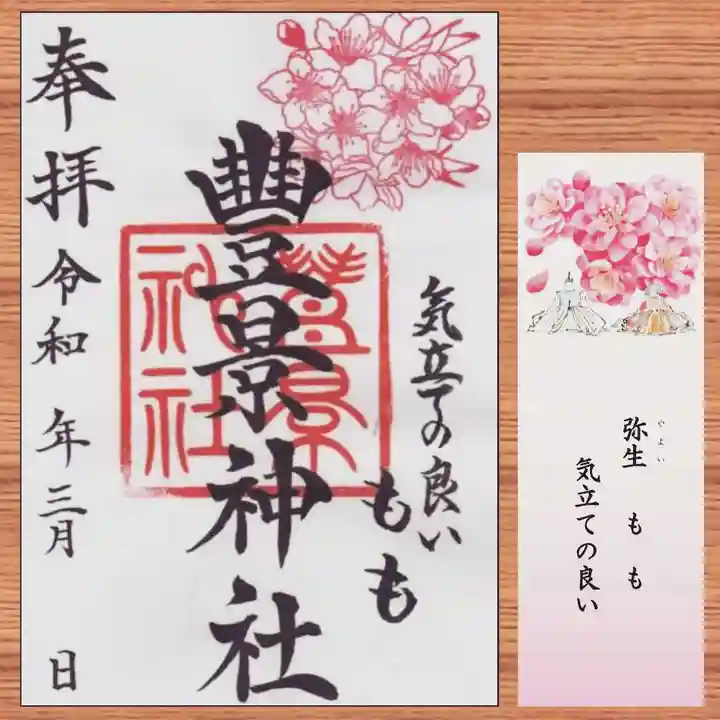 奉拝
令和 年三月 日
豊景神社
豊景
神社
気立ての良い
もも
弥生 もも
やよい
気立ての良い